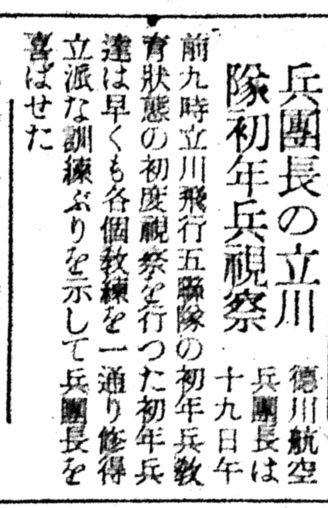 兵團長の立川
隊初年兵視察
德川航空
兵團長は
十九日午
前九時立川飛行五聯隊の初年兵敎
育狀態の初度視察を行つた初年兵
達は早くも各個敎練を一通り修得
立派な訓練ぶりを示して兵團長を
喜ばせた